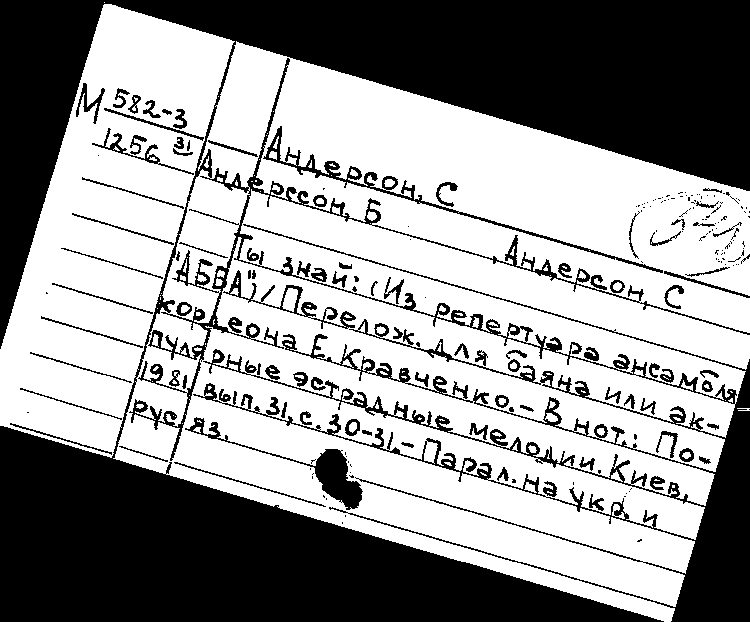 М 582-3
1256 31
Андерсон, С
Андерссон, Б , Андерсон, С
Ты знай: (Из репертуара ансамбля
"АББА")/Перелож. для баяна или ак-
кордеона Е. Кравченко.- В нот.: По-
пулярные эстрадные мелодии. Киев,
1981, вып. 31, с. 30-31.- Парал. на укр. и
рус. яз.